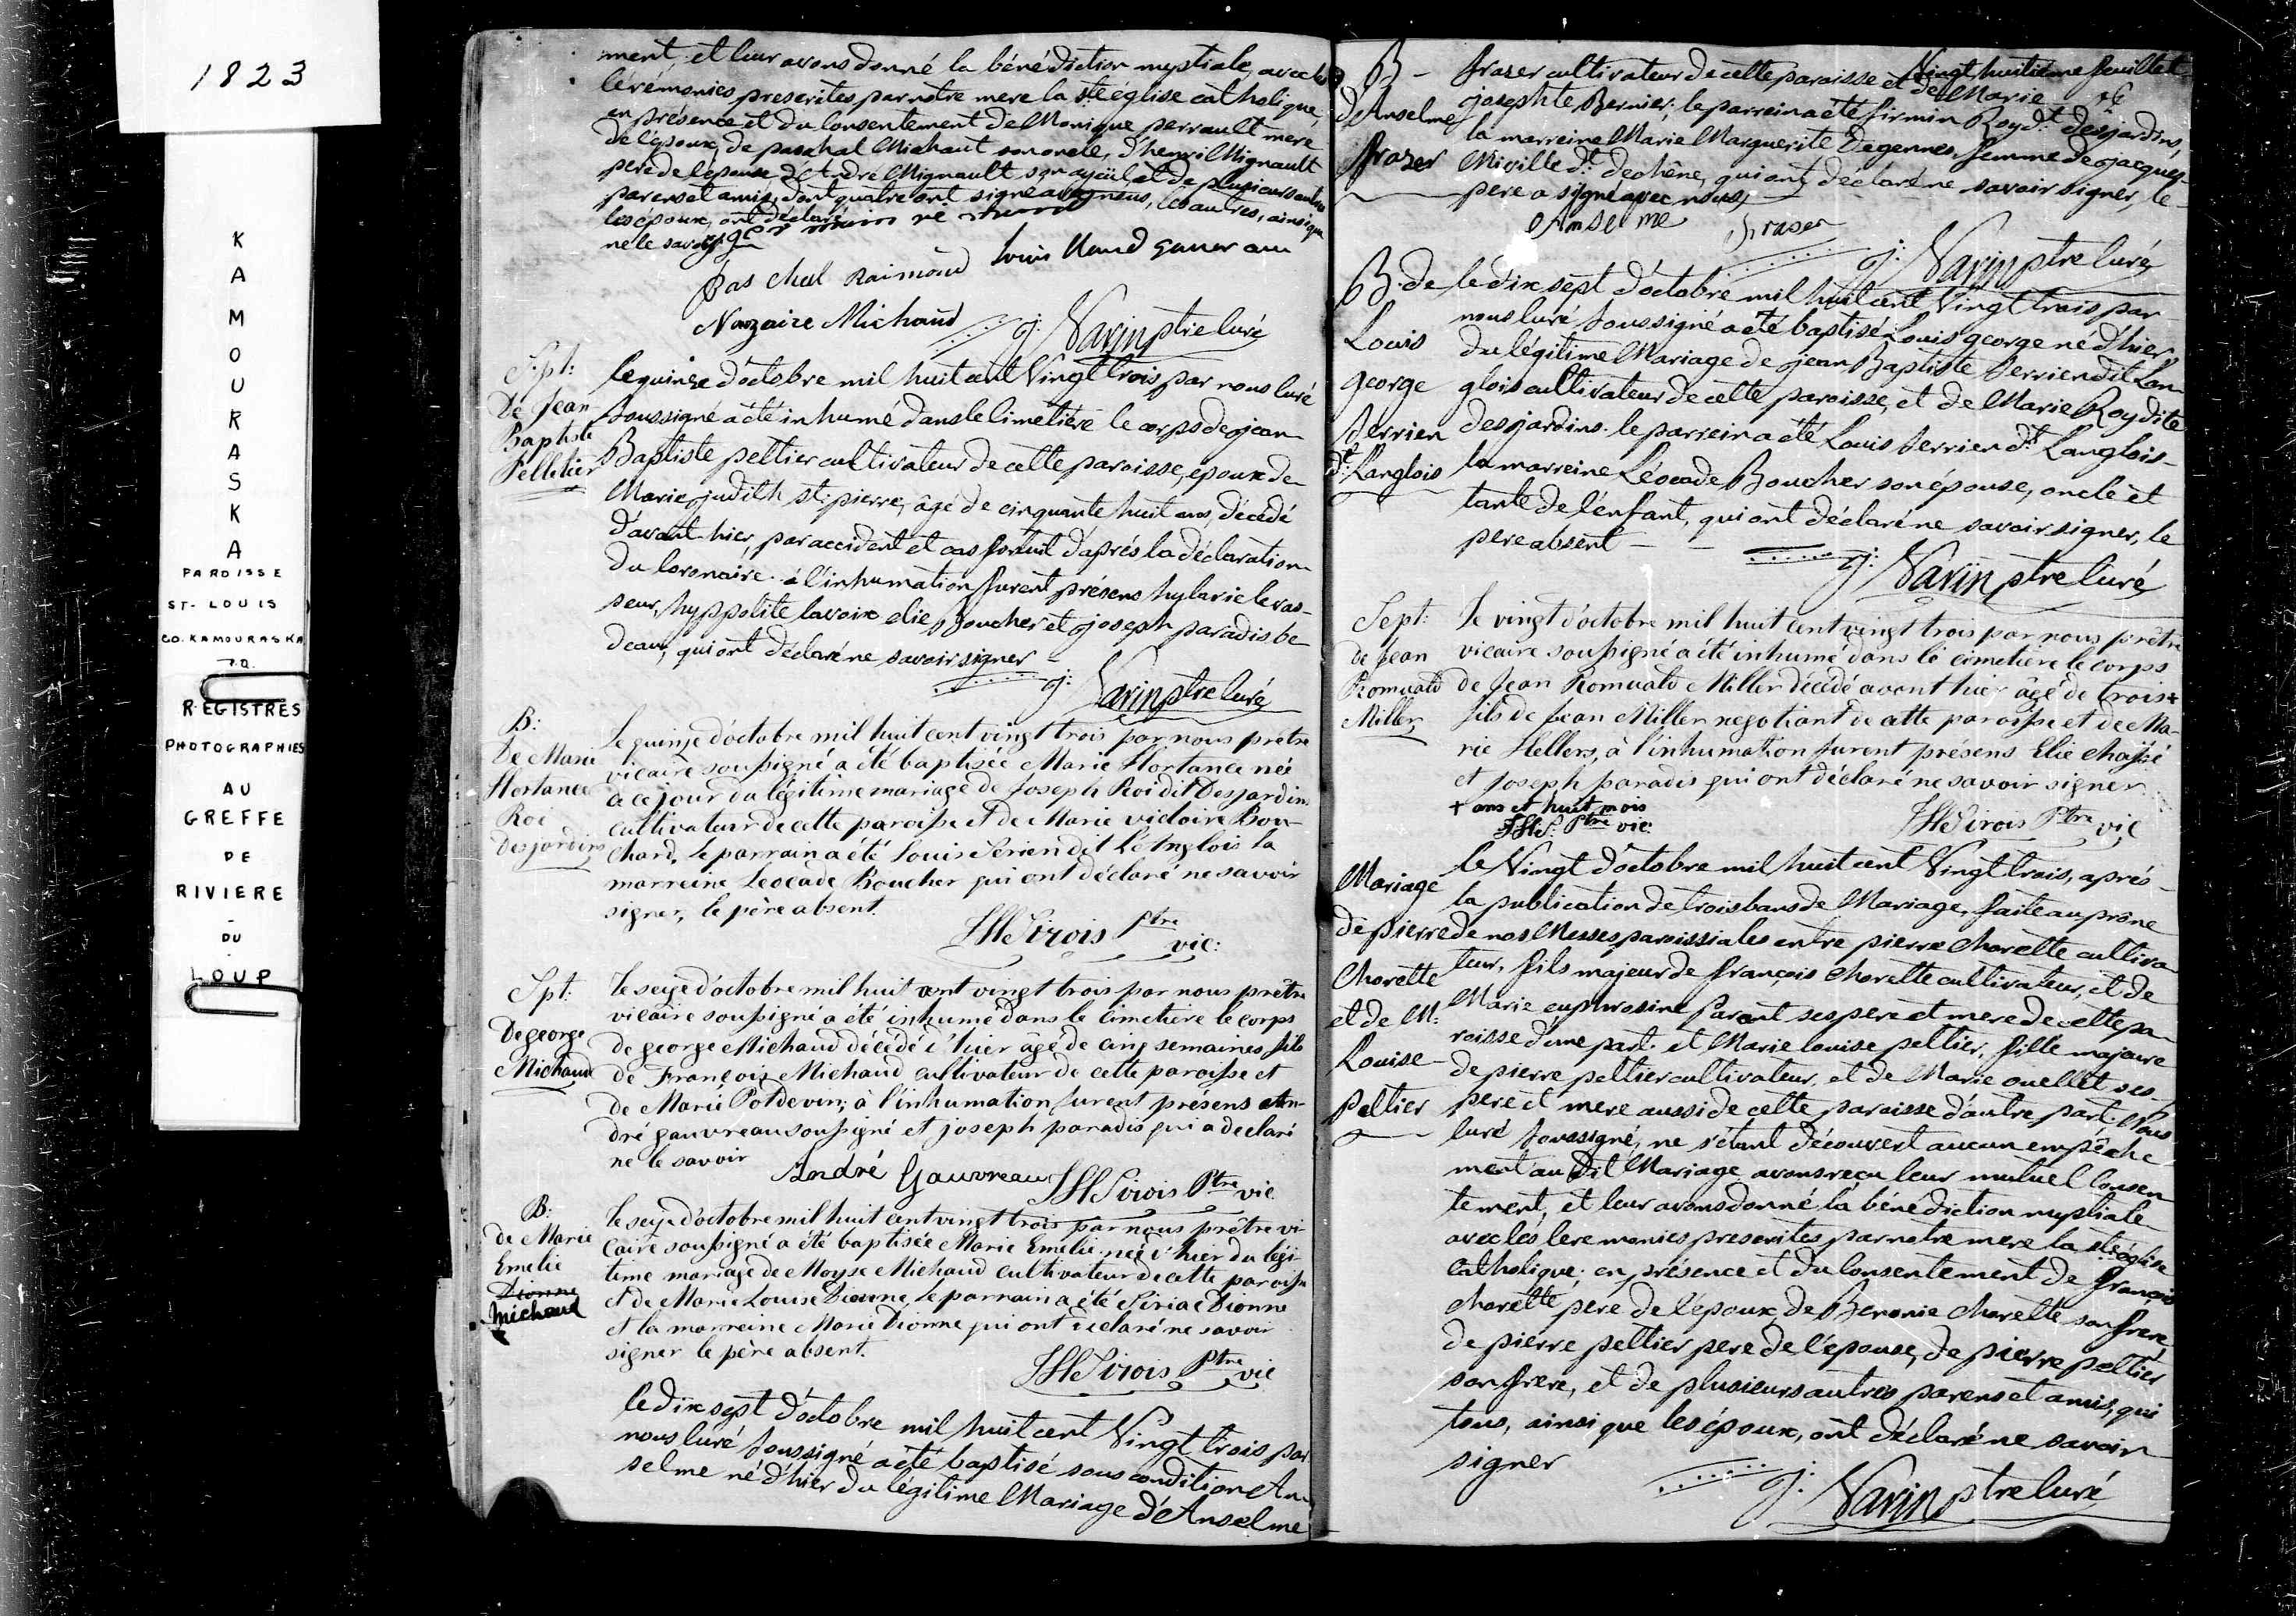 1823
KAMOURASKA
PAROISSE
ST-LOUIS
CO. KAMOURASKA
P.Q.
REGISTRES
PHOTOGRAPHIES
AU
GREFFE
DE
RIVIERE
-
DU
-
LOUP
ment, et leur avons donné la bénédiction nuptiale, avec les
cérémonies prescrites par notre mere la ste église catholique,
en présence et du consentement de Monique perrault mere
de l'époux, de paschal Michaut son oncle, d'henri Mignault
pere de l'épouse d'André Mignault son ayeül, et de plusieurs autres
parens et amis, dont quatre ont signé avec nous, les autres, ainsi que
les époux, ont déclaré
ne le savoir
Paschal Raimond
Nazaire Michaud
j: Varin ptre curé
Spt:
De Jean
Baptiste
Pelletier
le quinze d'octobre mil huit cent Vingt trois, par nous curé
soussigné a été inhumé dans le cimetiere le corps de jean
Baptiste peltier cultivateur de cette paroisse, epoux de
Marie judith st: pierre, âgé de cinquante huit ans, décédé
d'avant-hier, par accident et cas fortuit d'aprés la déclaration
du coronaire. à l'inhumation furent présens hylarie levas-
seur, hyppolite lavoix elie Boucher et joseph paradis be-
deau, qui ont déclaré ne savoir signer
j: Varin ptre curé
B:
De Marie
Hortance
Roi
Desjardins
Le quinze d'octobre mil huit cent vingt trois par nous prêtre
vicaire soussigné a été baptisée Marie Hortance née
a ce jour du légitime mariage de Joseph Roi dit Desjardins
cultivateur de cette paroisse et de Marie victoire Bou-
chard, le parrain a été Louis Terien dit l'Anglois la
marreine Leocade Boucher qui ont déclaré ne savoir
signer, le père absent.
JHSirois Ptre
vic:
Spt:
De george
Michaud
Le seize d'octobre mil huit cent vingt trois par nous prêtre
vicaire soussigné a été inhumé dans le cimetiere le corps
de george Michaud décédé d'hier âgé de cinq semaines, fils
de François Michaud cultivateur de cette paroisse et
de Marie Potdevin; à l'inhumation furent présens An-
dré gauvreau soussigné et joseph paradis qui a declaré
ne le savoir
André Gauvreau JHSirois Ptre vic
B:
de Marie
Emelie
Dionne
Michaud
Le seize d'octobre mil huit cent vingt trois par nous prêtre vi-
caire soussigné a été baptisée Marie Emelie née d'hier du légi-
time mariage de Moyse Michaud cultivateur de cette paroisse
et de Marie Louise Dionne, le parrain a été Siriac Dionne
et la marreine Marie Dionne qui ont declaré ne savoir
signer le père absent.
JHSirois Ptre vic
le dix sept d'octobre mil huit cent Vingt trois par
nous curé soussigné a été baptisé sous condition An-
selme né d'hier du légitime Mariage d'Anselme
Vingt huitieme feuillet
B-
d'Anselme
frazer
frazer cultivateur de cette paroisse et de Marie
josephte Bernier; le parrein a été firmin Roy dt desjardins,
la marreine Marie Marguerite Degennes, femme de jacques
Miville dt dechêne, qui ont déclaré ne savoir signer, le
pere a signé avec nous,
Anselme fraser
j: Varin ptre curé
B. de
Louis
george
Terrien
dt Langlois
le dix sept d'octobre mil huit cent Vingt trois par
nous curé soussigné a été baptisé Louis george né d'hier
du légitime Mariage de jean Baptiste Terrien dit Lan
glois cultivateur de cette paroisse, et de Marie Roy dite
desjardins. le parrein a été Louis Terrien dt Langlois
la marreine Léocade Boucher son épouse, oncle et
tante de l'enfant, qui ont déclaré ne savoir signer, le
pere absent
j: Varin ptre curé
Sept:
de Jean
Romuald
Miller
Le vingt d'octobre mil huit cent vingt trois par nous prêtre
vicaire soussigné a été inhumé dans le cimetiere le corps
de Jean Romuald Miller décédé avant hier âgé de trois +
fils de Jean Miller negotiant de cette paroisse et de Ma-
rie Hellers, à l'inhumation furent présens Elie Chassé
et Joseph paradis qui ont déclaré ne savoir signer
+ ans et huit mois
JHS. Ptre vic:
JHSirois Ptre vic
Mariage
de pierre
Charette
et de M:
Louise
Peltier
le Vingt d'octobre mil huit cent Vingt trois, aprés
la publication de trois bans de Mariage, faite au prône
de nos Messes paroissiales entre pierre charette cultiva
teur, fils majeur de françois charette cultivateur, et de
Marie euphrosine Parant ses pere et mere de cette pa
roisse d'une part. et Marie louise peltier, fille majeure
de pierre peltier cultivateur, et de Marie ouellet ses
pere et mere aussi de cette paroisse d'autre part. Nous
curé soussigné, ne s'étant découvert aucun empêche
ment au dit Mariage avons reçu leur mutuel Consen
tement, et leur avons donné la bénédiction nuptiale
avec les ceremonies prescrites par notre mere la ste église
catholique; en présence et du consentement de françois
charette pere de l'époux, de Beronie charette son frere,
de pierre peltier pere de l'épouse, de pierre peltier
son frere, et de plusieurs autres parens et amis, qui
tous, ainsi que les époux, ont déclaré ne savoir
signer
j: Varin ptre curé